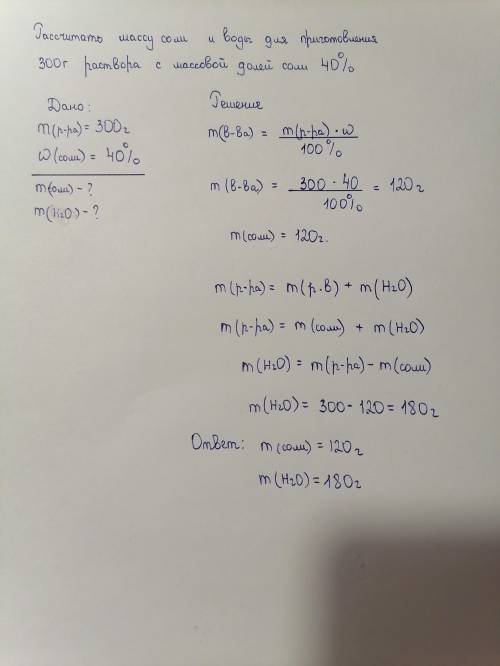 Рассчитать массу соли и воды для приготовления
300г раствора с массовой долей соли 40%
Дано:
m(р-ра) = 300г
ω(соли) = 40%
m(соли) - ?
m(H2O) - ?
Решение
m(в-ва) = m(р-ра) · ω / 100%
m(в-ва) = 300 · 40 / 100% = 120г
m(соли) = 120г.
m(р-ра) = m(р.в) + m(H2O)
m(р-ра) = m(соли) + m(H2O)
m(H2O) = m(р-ра) - m(соли)
m(H2O) = 300 - 120 = 180г
Ответ: m(соли) = 120г
m(H2O) = 180г